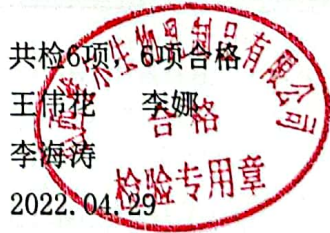 共检6项，6项合格
王伟花 李娜
李海涛
2022.04.29
生物制品有限公司
合格
检验专用章